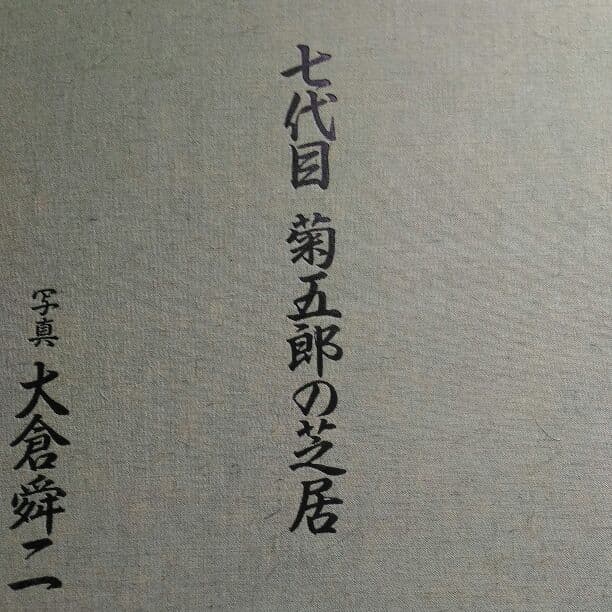 七代目 菊五郎の芝居
写真 大倉舜二